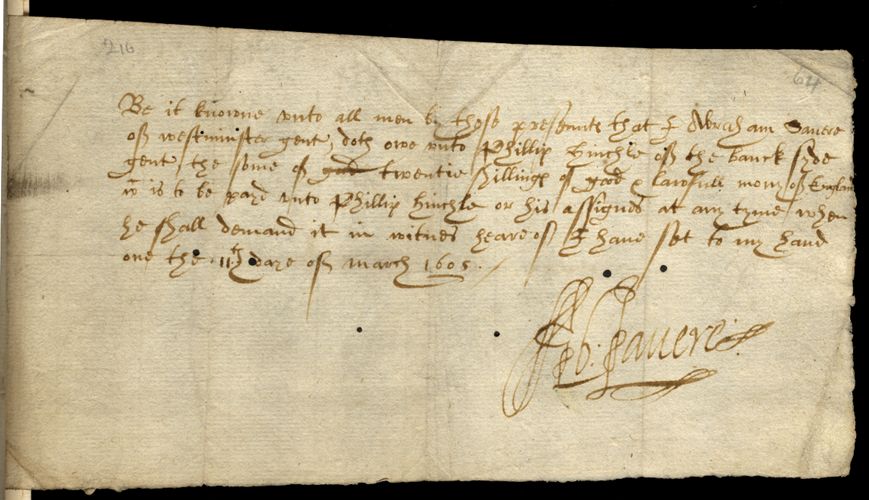 216
64
Be it knowne vnto all men by these presents that I Abraham Savere
of westminster gent, doth owe vnto Phillip hinchle of the banck syde
gent, the some of twentie shillings of good & lawfull mony of England
wch is to be payd vnto Phillip hinchle or his assignes at any tyme when
he shall demand it in witnes heareof I have set to my hand
one the 11th daye of march 1605.
Ab. Savere